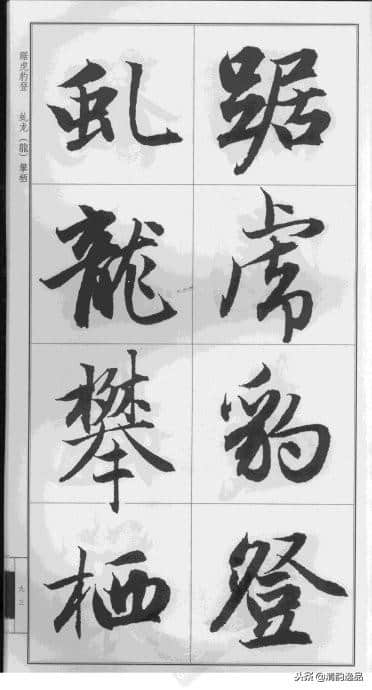 踞虎豹登
虬龍攀栖
踞虎豹登 虬龙（龍）攀栖
九三
头条@清韵逸品